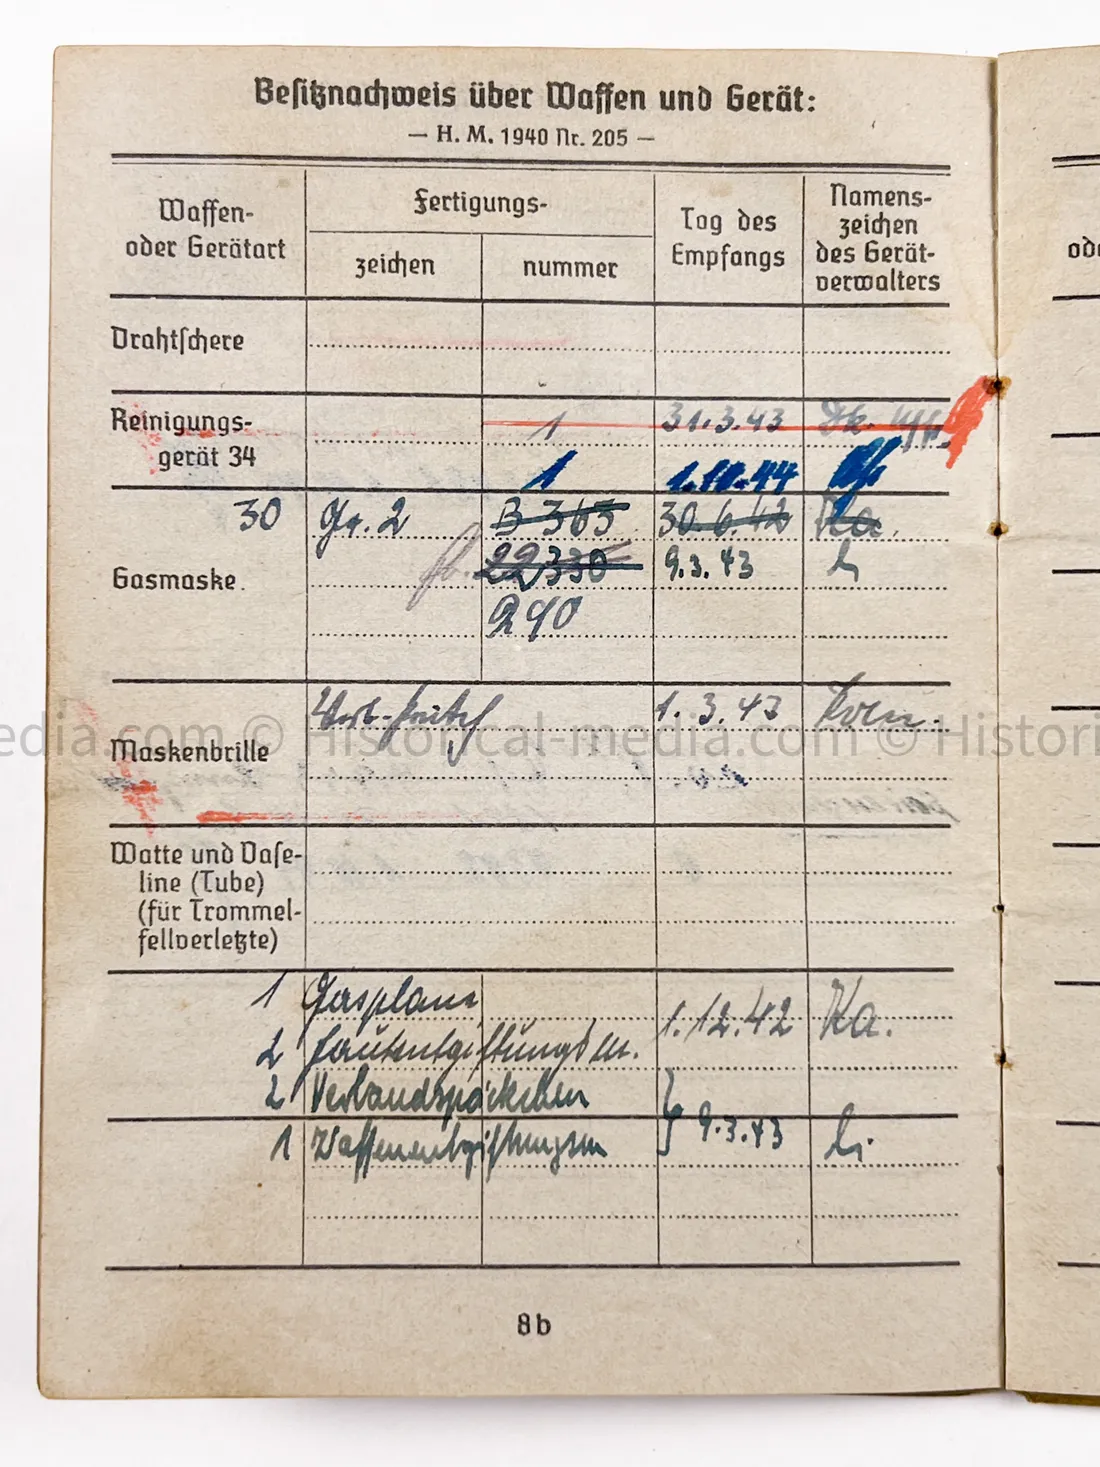 Besitznachweis über Waffen und Gerät:
— H. M. 1940 Nr. 205 —
Waffen-
oder Gerätart
Fertigungs-
zeichen
nummer
Tag des
Empfangs
Namens-
zeichen
des Gerät-
verwalters
Drahtschere
Reinigungs-
gerät 34
1 31.3.43
1 1.10.44
30 Gr. 2 B 365 30.6.42 Ka.
Gasmaske
22330 9.3.43
290
1.3.43
Maskenbrille
Watte und Vase-
line (Tube)
(für Trommel-
fellverletzte)
1 Gasplane
1.12.42 Ka.
2 Hautentgiftungsm.
2 Verbandspäckchen
1 Waffenentgiftungsm
9.3.43
8b
edia.com © Historical-media.com © Histori
ode